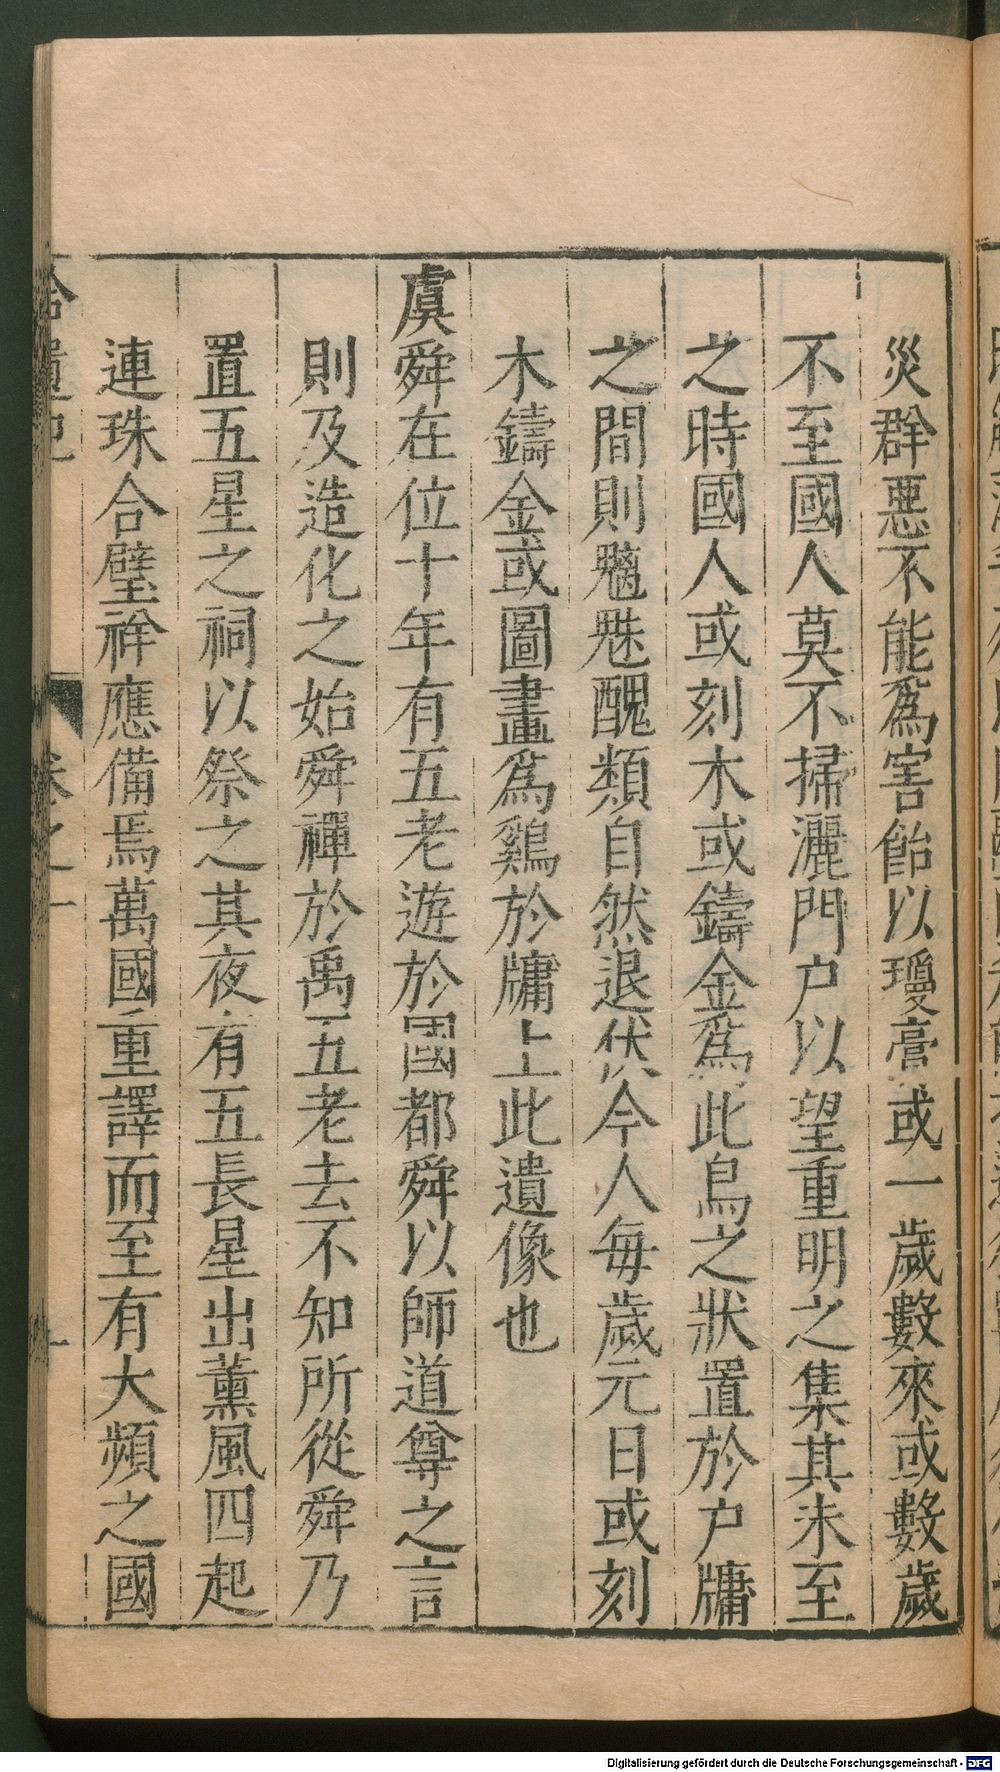 災群惡不能爲害飴以瓊膏或一歲數來或數歲
不至國人莫不掃灑門户以望重明之集其未至
之時國人或刻木或鑄金爲此鳥之狀置於户牖
之間則魑魅醜類自然退伏今人每歲元日或刻
木鑄金或圖畫爲鷄於牖上此遺像也
虞舜在位十年有五老遊於國都舜以師道尊之言
則及造化之始舜禪於禹五老去不知所從舜乃
置五星之祠以祭之其夜有五長星出薰風四起
連珠合璧祥應備焉萬國重譯而至有大頻之國
拾遺記 卷之一
Digitalisierung gefördert durch die Deutsche Forschungsgemeinschaft - DFG